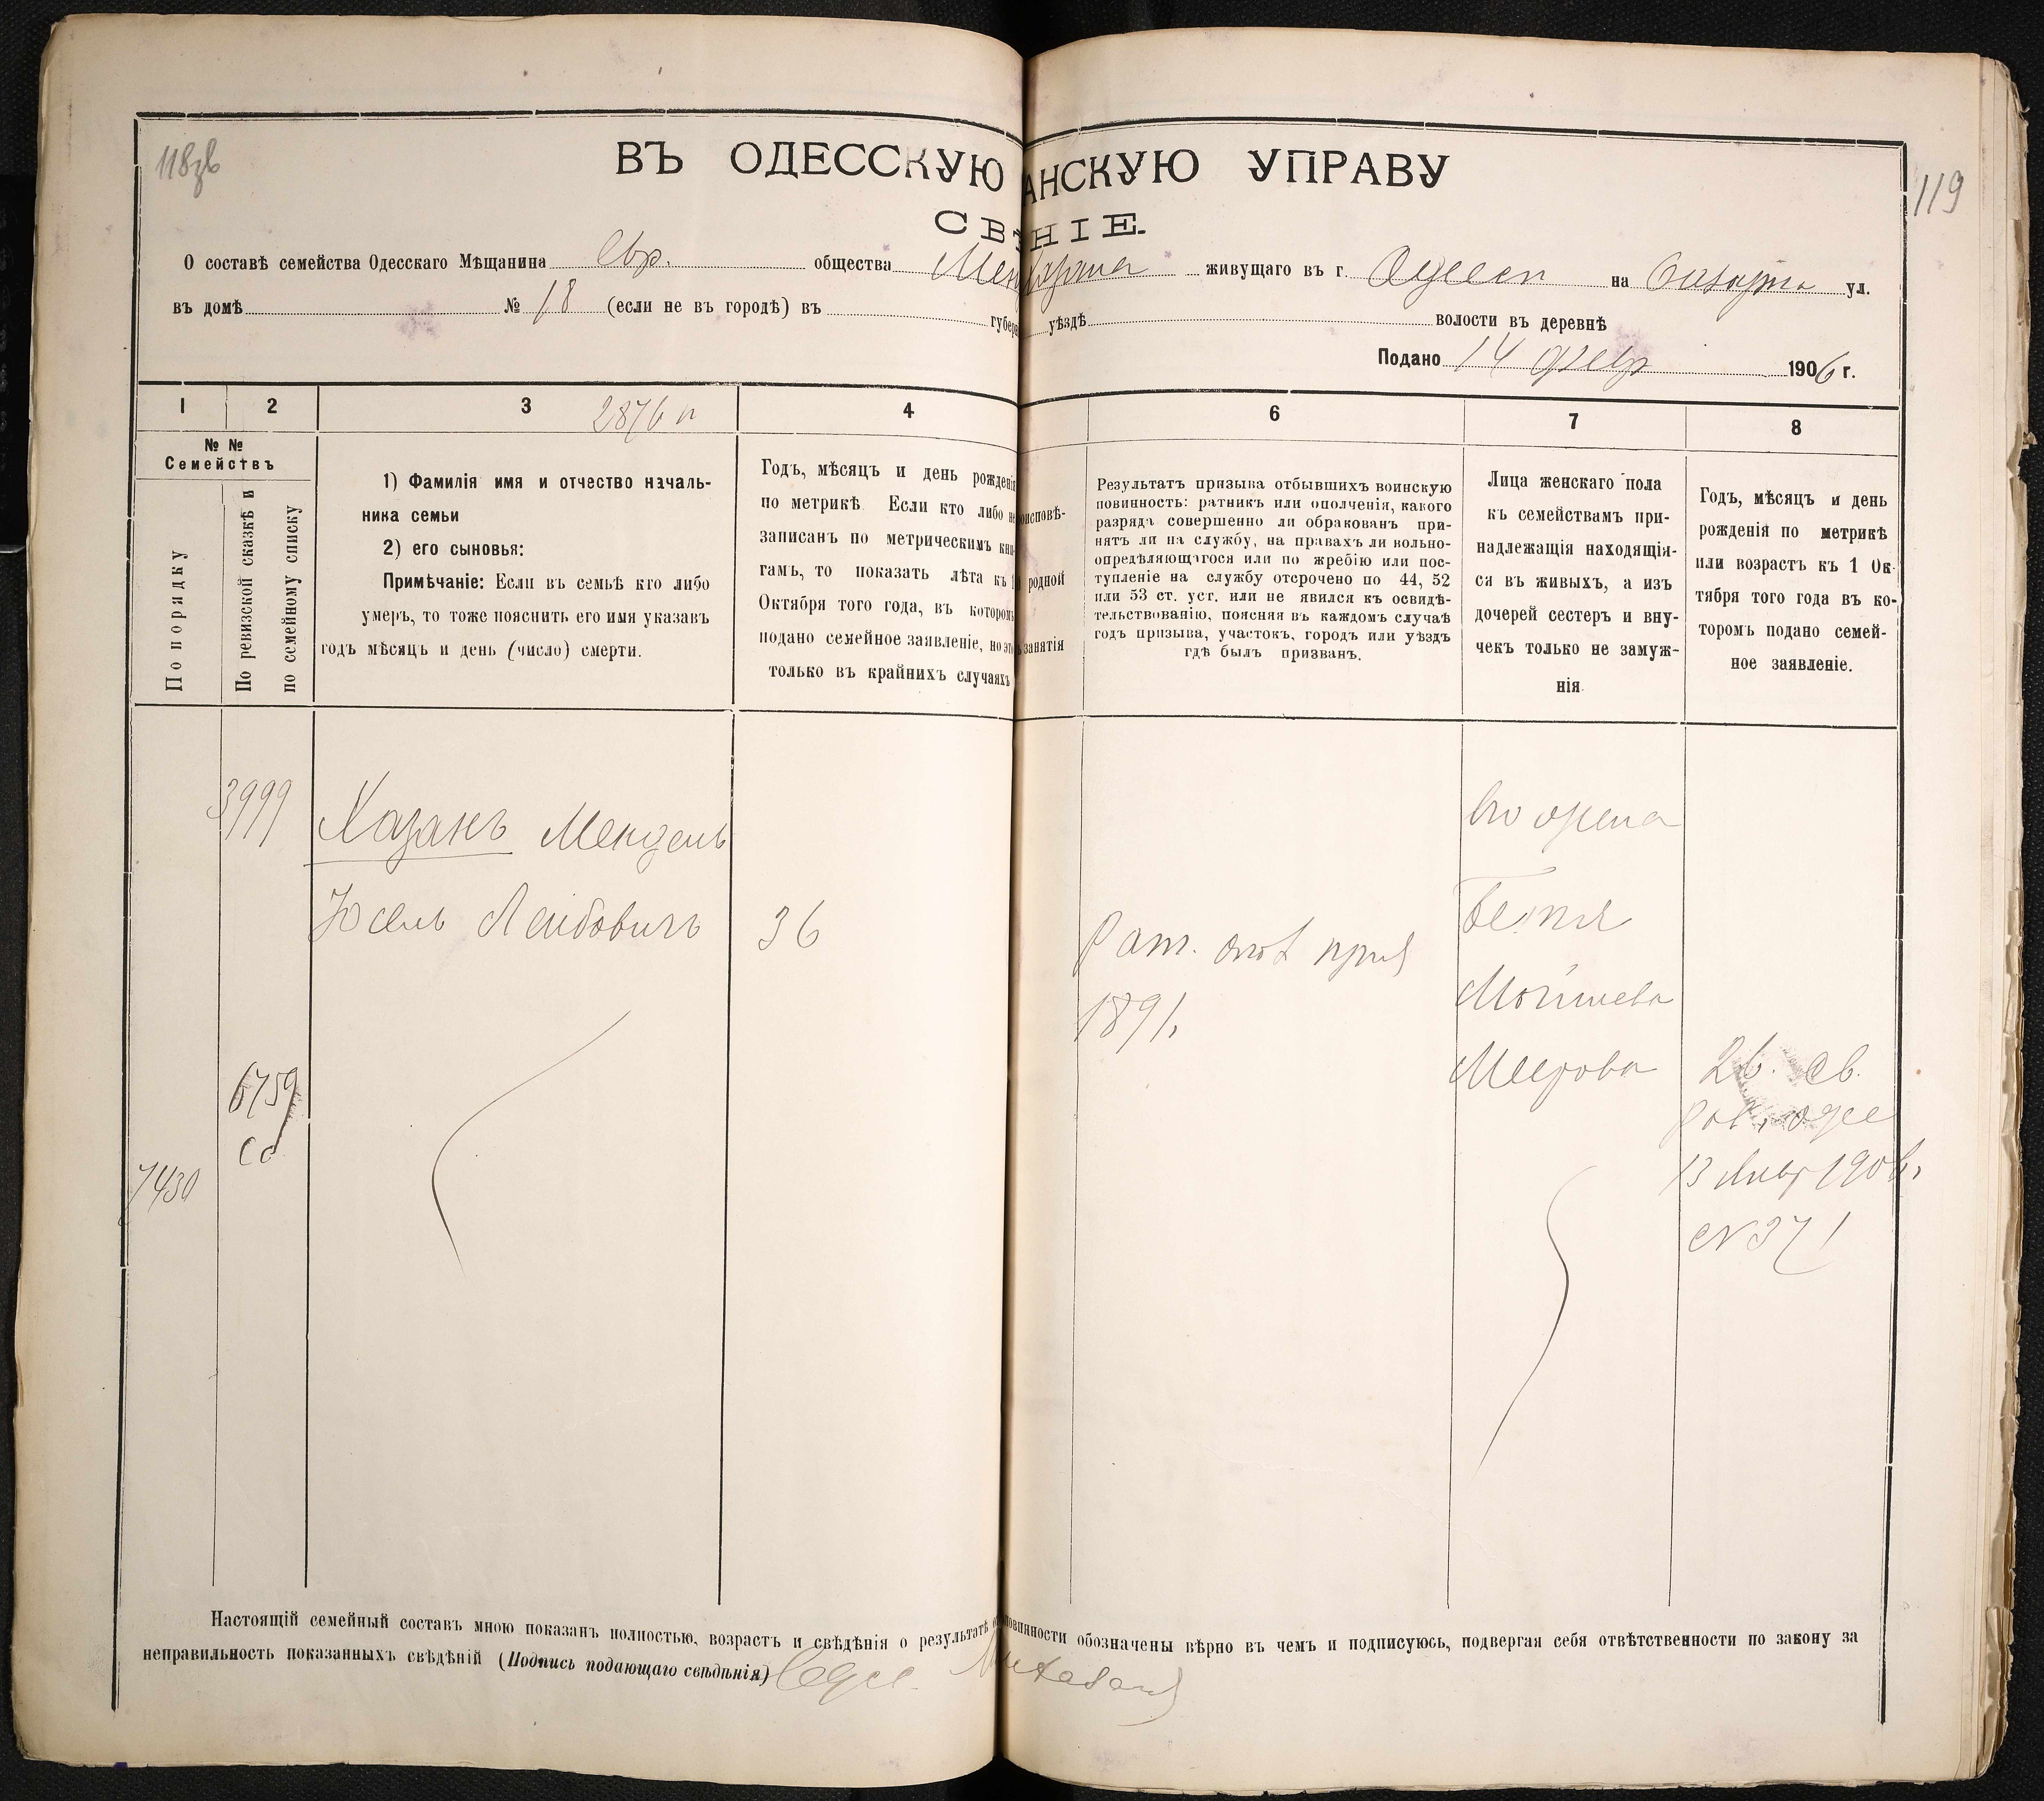 118зв
119
ВЪ ОДЕССКУЮ АНСКУЮ УПРАВУ
СВѢ НІЕ.
О составѣ семейства Одесскаго Мѣщанина Евр. общества живущаго въ г. Одессѣ на ул.
въ домѣ № 18 (если не въ городѣ) въ губер уѣздѣ волости въ деревнѣ
Подано 14 февр 1906 г.
1 2 3 2876 4 6 7 8
№ №
Семействъ
По порядку
По ревизской сказкѣ и
по семейному списку
1) Фамилія имя и отчество началь-
ника семьи
2) его сыновья:
Примѣчаніе: Если въ семьѣ кто либо
умеръ, то тоже пояснить его имя указавъ
годъ мѣсяцъ и день (число) смерти.
Годъ, мѣсяцъ и день рожденія
по метрикѣ Если кто либо не
записанъ по метрическимъ кни-
гамъ, то показать лѣта къ 1
Октября того года, въ которомъ
подано семейное заявленіе, но это
только въ крайнихъ случаяхъ
оисповѣ-
родной
занятія
Результатъ призыва отбывшихъ воинскую
повинность: ратникъ или ополченія, какого
разряда совершенно ли обракованъ при-
нятъ ли на службу, на правахъ ли вольно-
опредѣляющагося или по жребію или пос-
тупленіе на службу отсрочено по 44, 52
или 53 ст. уст. или не явился къ освидѣ-
тельствованію, поясняя въ каждомъ случаѣ
годъ призыва, участокъ, городъ или уѣздъ
гдѣ былъ призванъ.
Лица женскаго пола
къ семействамъ при-
надлежащія находящія-
ся въ живыхъ, а изъ
дочерей сестеръ и вну-
чекъ только не замуж-
нія.
Годъ, мѣсяцъ и день
рожденія по метрикѣ
или возрастъ къ 1 Ок-
тября того года въ ко-
торомъ подано семей-
ное заявленіе.
3999 Хазанъ Мендель
Юсель Лейбовичъ 36
Рат. опол приз
1891.
Его жена
Бейля
Мойшева
Меерова
26. Св.
рав. Одес
13 Янвр 1906 г.
№ 371
6759
Сс
7430
Настоящій семейный составъ мною показанъ полностью, возрастъ и свѣдѣнія о результатѣ повинности обозначены вѣрно въ чемъ и подписуюсь, подвергая себя отвѣтственности по закону за
неправильность показанныхъ свѣдѣній (Подпись подающаго свѣдѣнія)